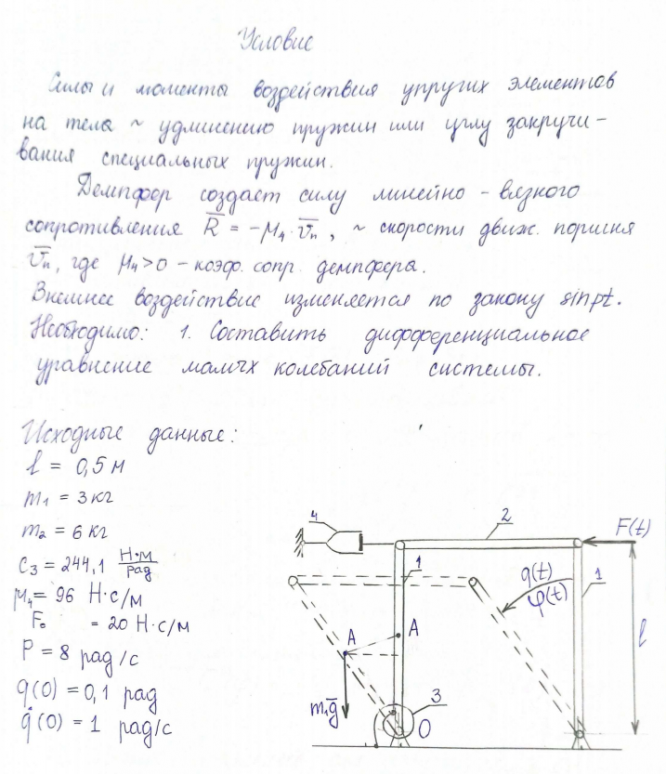 Условие
Силы и моменты воздействия упругих элементов
на тела ~ удлинению пружин или углу закручи-
вания специальных пружин.
Демпфер создает силу линейно - вязкого
сопротивления R̅ = -μ₄·v̅ₙ, ~ скорости движ. поршня
v̅ₙ, где μ₄>0 - коэф. сопр. демпфера.
Внешнее воздействие изменяется по закону sinpt.
Необходимо: 1. Составить дифференциальное
уравнение малых колебаний системы.
Исходные данные:
l = 0,5 м
m₁ = 3 кг
m₂ = 6 кг
c₃ = 244,1 Н·м/рад
μ₄ = 96 Н·с/м
F₀ = 20 Н·с/м
P = 8 рад/с
q(0) = 0,1 рад
q̇(0) = 1 рад/с
4
2
F(t)
1
q(t)
φ(t)
1
A
A
l
m₁g̅
3
O